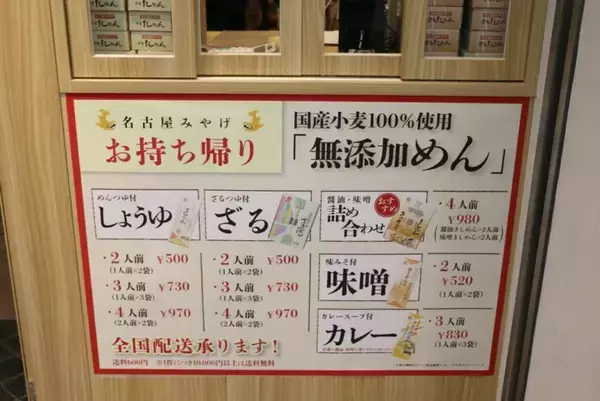 名古屋みやげ
お持ち帰り
国産小麦100%使用
「無添加めん」
めんつゆ付
しょうゆ
・2人前 ¥500
(1人前×2袋)
・3人前 ¥730
(1人前×3袋)
・4人前 ¥970
(2人前×2袋)
ざるつゆ付
ざる
・2人前 ¥500
(1人前×2袋)
・3人前 ¥730
(1人前×3袋)
・4人前 ¥970
(2人前×2袋)
醤油・味噌
詰め
合わせ
おすすめ
・4人前
¥980
(醤油きしめん×2人前
味噌きしめん×2人前)
味みそ付
味噌
・2人前
¥520
(1人前×2袋)
カレースープ付
カレー
・3人前
¥830
(1人前×3袋)
全国配送承ります!
送料600円 ※1件につき10,000円以上は送料無料